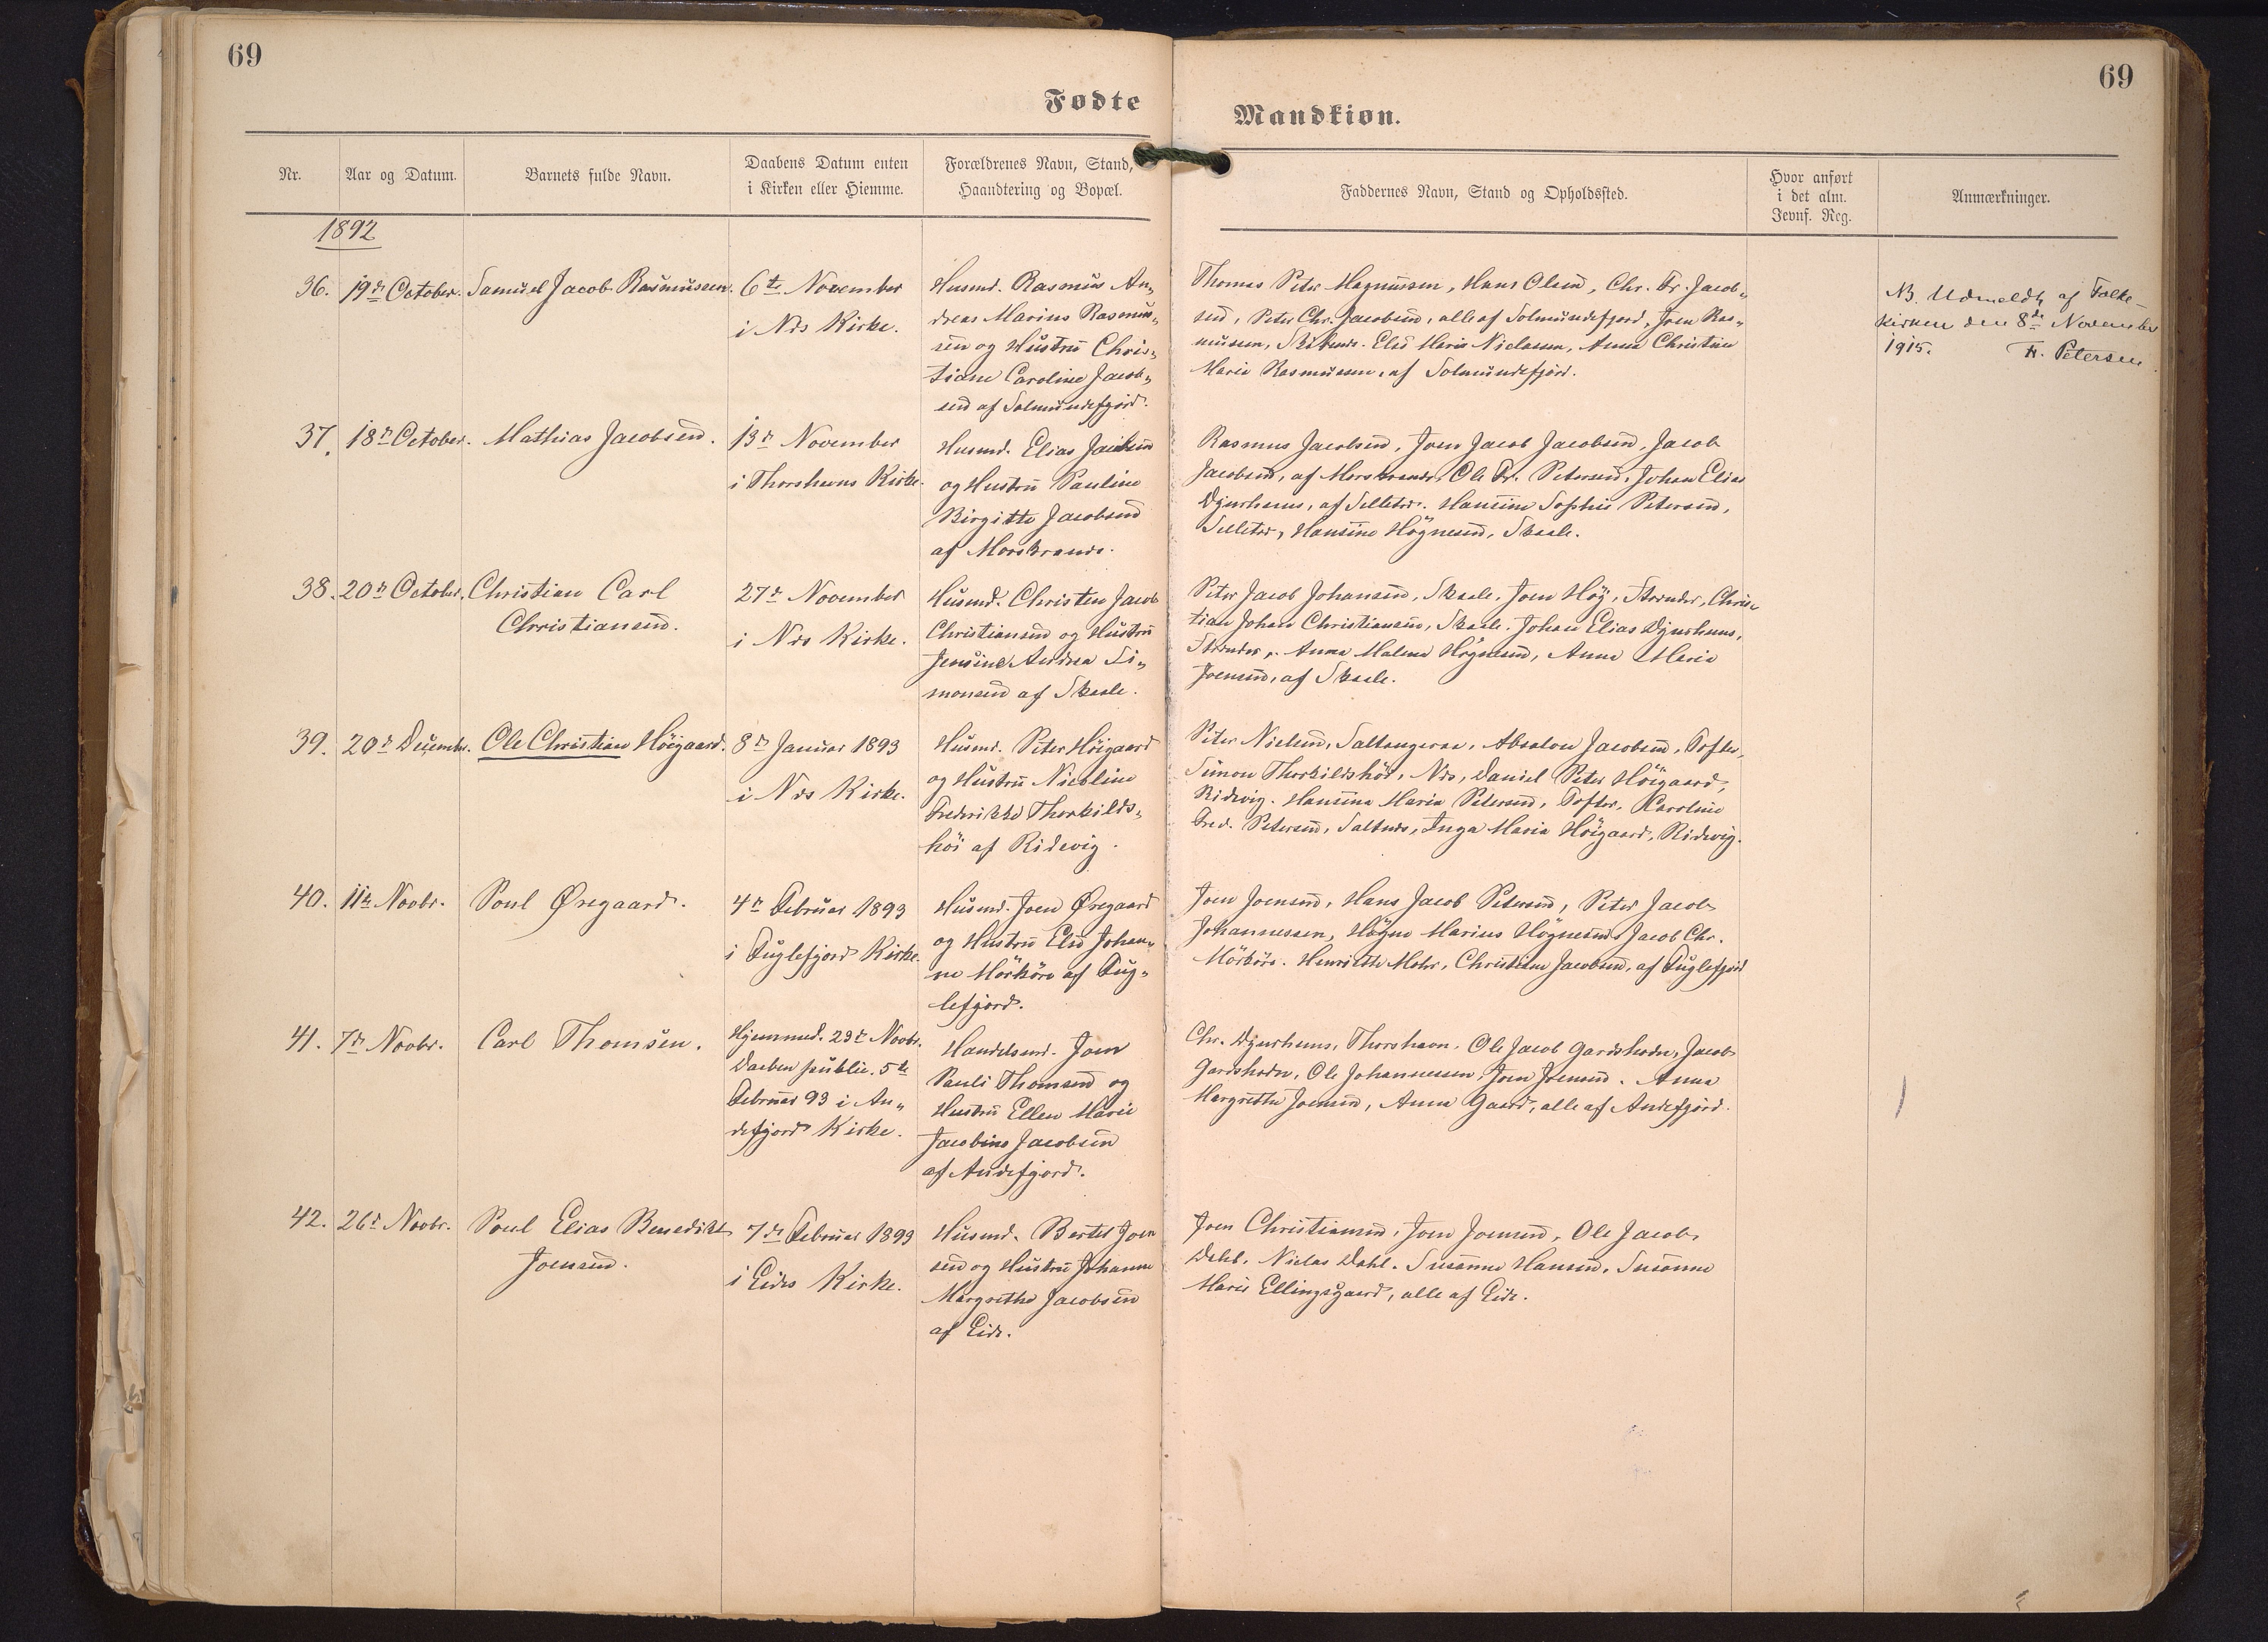 69
69
Fødte
Mandkiøn.
Nr.
Aar og Datum.
Barnets fulde Navn.
Daabens Datum enten
i Kirken eller Hiemme.
Forældrenes Navn, Stand,
Haandtering og Bopæl.
Faddernes Navn, Stand og Opholdssted.
Hvor anført
i det alm.
Jevnf. Reg.
Anmærkninger.
1892
36. 19de October. Samuel Jacob Rasmussen.
6te November
i Næs Kirke.
Husmd. Rasmus An„
dreas Marius Rasmus„
sen og Hustru Chris„
tiane Caroline Jacob„
sen af Solmundefjord.
Thomas Peter Magnussen, Hans Olsen, Chr. Fr. Jacob„
sen, Peter Chr. Jacobsen, alle af Solmundefjord, Joen Ras„
mussen, Else Marie Niclasen, Anna Christine
Marie Rasmussen, af Solmundefjord.
NB. Udmeldt af Folke-
kirken den 8de November
1915. F. Petersen
37. 18de October. Mathias Jacobsen.
13de November
i Thorshavns Kirke.
Husmd. Elias Jacobsen
og Hustru Pauline
Birgitte Jacobsen
af Morskranes.
Rasmus Jacobsen, Joen Jacob Jacobsen, Jacob
Jacobsen, af Morskranes, Ole Fr. Petersen, Johan Elias
Djurhuus, af Selletræ. Hansine Sophie Petersen,
Selletræ, Hansine Högnesen, Skaale.
38. 20de October. Christian Carl
Christiansen.
27de November
i Næs Kirke.
Husmd. Christen Jacob
Christiansen og Hustru
Jensine Andrea Si„
monsen af Skaale.
Peter Jacob Johansen, Skaale, Joen Høj, Strænder, Chris„
tian Johan Christiansen, Skaale. Johan Elias Djurhuus,
Strænder, Anna Malene Högnesen, Anne Marie
Joensen, af Skaale.
39. 20de Decembr. Ole Christian Höigaard.
8de Januar 1893
i Næs Kirke.
Husmd. Peter Höigaard
og Hustru Nicoline
Frederikke Thorkilds„
höi af Ridevig.
Peter Nielsen, Saltangeraa, Absalon Jacobsen, Tofter,
Simon Thorkildshöi, Næs, Daniel Peter Höigaard,
Ridevig. Hansine Marie Petersen, Tofter, Karoline
Fred. Petersen, Saltnæs, Inga Maria Höigaard, Ridevig.
40. 11te Novbr. Poul Øregaard.
4de Februar 1893
i Fuglefjord Kirke.
Husmd. Joen Øregaard
og Hustru Else Johan„
ne Mörköre af Fug„
lefjord.
Joen Joensen, Hans Jacob Petersen, Peter Jacob
Johannessen, Högne Marius Högnesen, Jacob Chr.
Mörköre. Henriette Mohr, Christiane Jacobsen, af Fuglefjord
41. 7de Novbr. Carl Thomsen.
Hjemmed. 23de Novbr.
Daaben public. 5te
Februar 93 i An„
defjord Kirke.
Handelsmd. Joen
Pauli Thomsen og
Hustru Ellen Marie
Jacobine Jacobsen
af Andefjord.
Chr. Djurhuus, Thorshavn. Ole Jacob Gardshodn, Jacob
Gardshodn, Ole Johannessen, Joen Joensen. Anna
Margrethe Joensen, Anna Gaard, alle af Andefjord.
42. 26de Novbr. Poul Elias Benedikt
Joensen.
7de Februar 1893
i Eides Kirke.
Husmd. Bertel Joen
sen og Hustru Johanne
Margrethe Jacobsen
af Eide.
Joen Christiansen, Joen Joensen, Ole Jacob
Dahl, Niclas Dahl. Susanne Hansen, Susanne
Marie Ellingsgaard, alle af Eide.